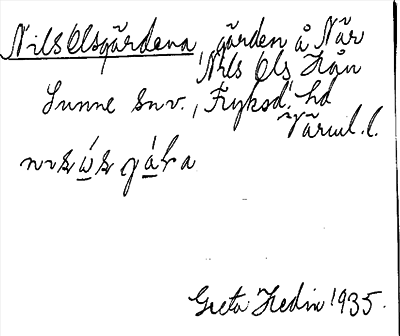 Nils Olsgårdena, gården å När
Nils Ols
Sunne snv., Fryksd. hd
Värml. l.
Greta Hedin 1935.